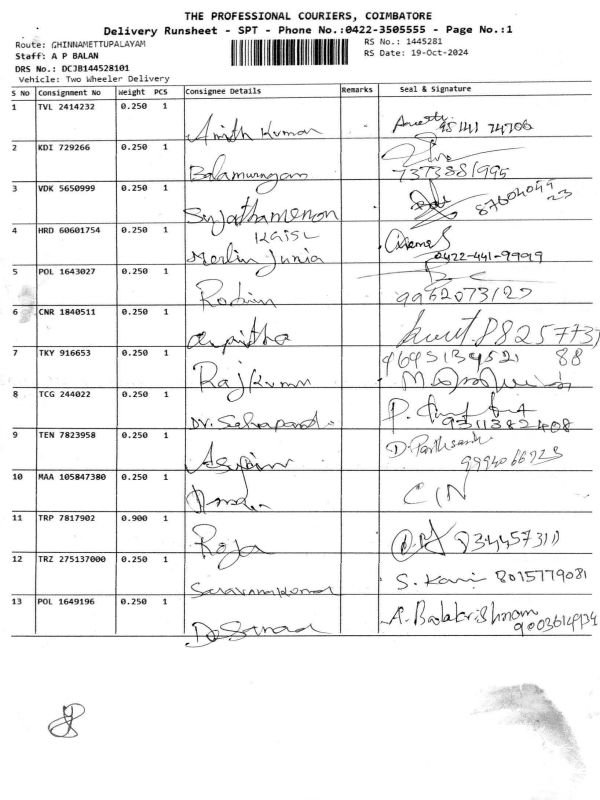 THE PROFESSIONAL COURIERS, COIMBATORE
Delivery Runsheet - SPT - Phone No.:0422-3505555 - Page No.:1
Route: GHINNAMETTUPALAYAM
RS No.: 1445281
Staff: A P BALAN
RS Date: 19-Oct-2024
DRS No.: DCJB144528101
Vehicle: Two Wheeler Delivery
S No Consignment No Weight PCS Consignee Details Remarks Seal & Signature
1 TVL 2414232 0.250 1 Amith Kumar 95141 74706
2 KDI 729266 0.250 1 Balamurugan 7373881995
3 VDK 5650999 0.250 1 Sujathamenon 87604049 23
4 HRD 60601754 0.250 1 KGISL Merlin Junia 0422-441-9999
5 POL 1643027 0.250 1 9962073127
6 CNR 1840511 0.250 1 Arpitha 88257737 88
7 TKY 916653 0.250 1 Rajkumar 9645134521
8 TCG 244022 0.250 1 Dr. 9311382408
9 TEN 7823958 0.250 1 D. 9994066723
10 MAA 105847380 0.250 1 CIN
11 TRP 7817902 0.900 1 Roja
12 TRZ 275137000 0.250 1 Saravanakumar S. Kavi 8015779081
13 POL 1649196 0.250 1 A. Balakrishnan 9003614934